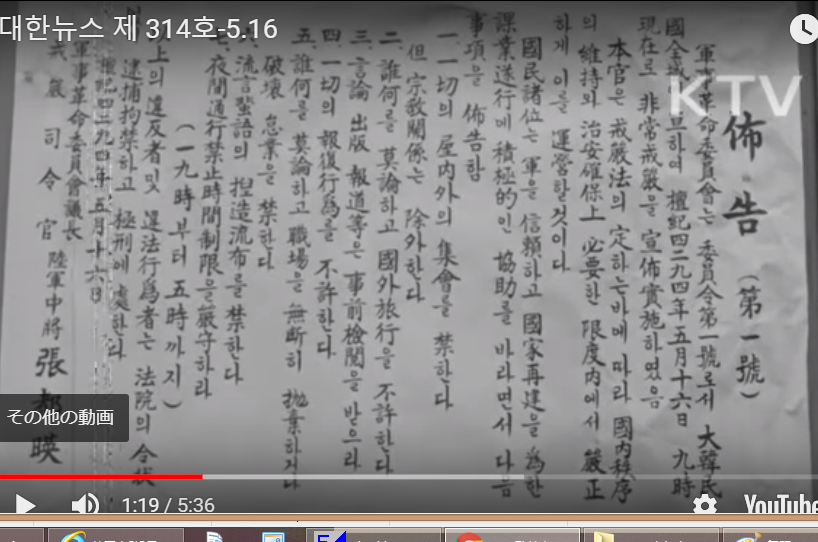 대한뉴스 제 314호-5.16
KTV
佈告 (第一號)
軍事革命委員會는 委員令第一號로서 大韓民
하여 檀紀四二九四年五月十六日 九時
現在로 非常戒嚴을 宣佈實施하였음
本官은 戒嚴法의 定하는바에 따라 國內秩序
의 維持와 治安確保上 必要한 限度內에서 嚴正
하게 이를 運營할것이다
國民諸位는 軍을 信賴하고 國家再建을 爲한
課業遂行에 積極的인 協助를 바라면서 다음
事項을 佈告함
一. 一切의 屋內外의 集會를 禁한다
但 宗敎關係는 除外한다
二. 誰何를 莫論하고 國外旅行을 不許한다
三. 言論 出版 報道等은 事前檢閱을 받으라
四. 一切의 報復行爲를 不許한다
五. 誰何를 莫論하고 職場을 無斷히 抛棄하거나
破壞 怠業을 禁한다
六. 流言蜚語의 捏造流布를 禁한다
七. 夜間通行禁止時間制限을 嚴守하라
(一九時부터 五時까지)
以上의 違反者 및 違法行爲者는 法院의 令狀
逮捕拘禁하고 極刑에 處한다
檀紀四二九四年五月十六日
軍事革命委員會議長
戒嚴司令官 陸軍中將 張都暎
その他の動画
1:19 / 5:36
YouTube